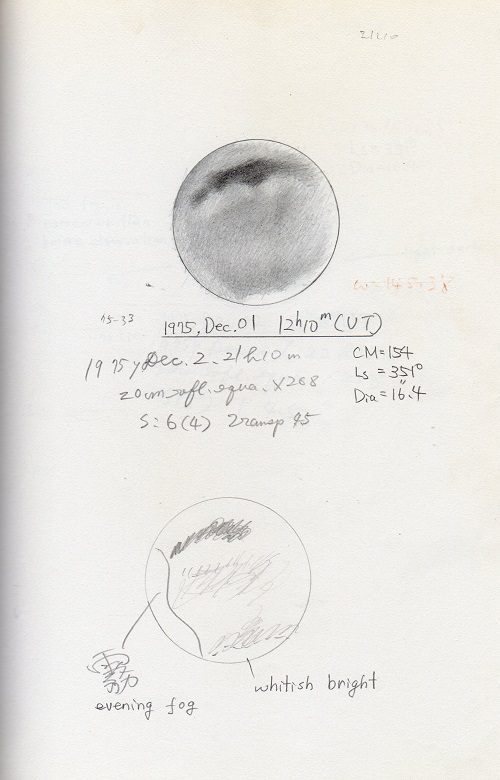 ω=145+3°
75-33
1975, Dec. 01 12h10m (UT)
CM=154
Ls = 351°
Dia=16".4
1975y Dec. 2. 21h10m
20cm refl. equa. ×268
S=6(4) transp 4.5
霧
evening fog
whitish bright